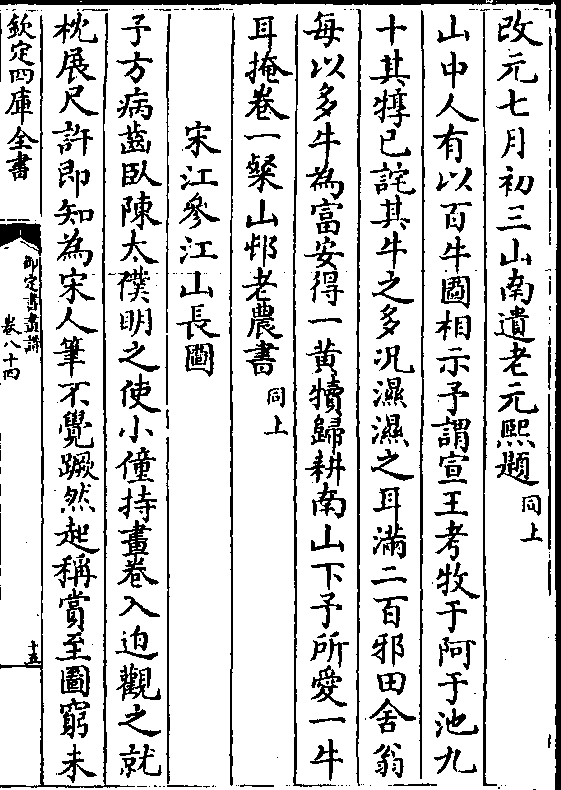 改元七月初三山南遺老元熙題同上
山中人有以百牛圖相示予謂宣王考牧于阿于池九
十其犉已詫其牛之多況濕濕之耳滿二百邪田舍翁
每以多牛為富安得一黄犢歸耕南山下予所愛一牛
耳掩卷一粲山邨老農書同上
宋江參江山長圖
子方病齒臥陳太僕明之使小僮持畫卷入迫觀之就
枕展尺許即知為宋人筆不覺蹶然起稱賞至圖窮未
欽定四庫全書
御定書畫譜
卷八十四
十五